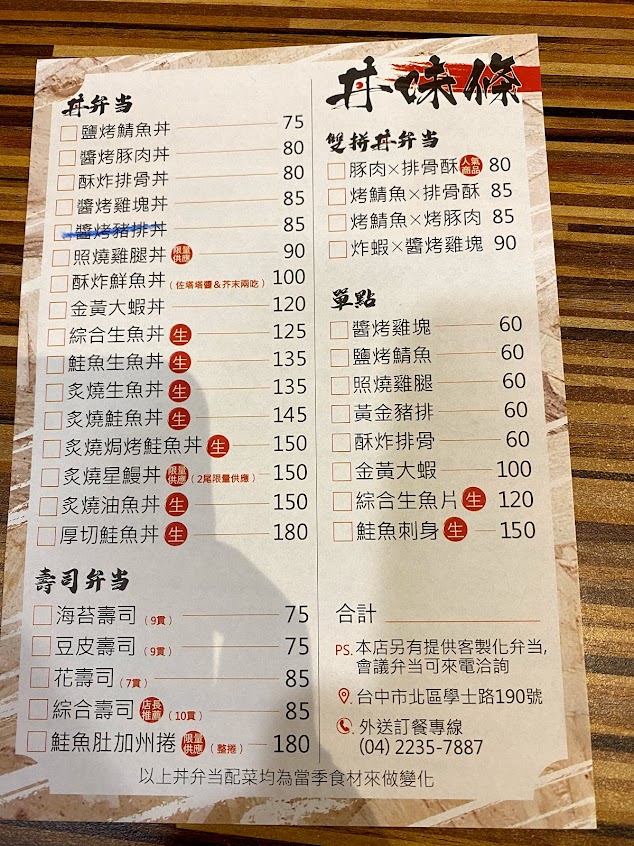 丼弁当
鹽烤鯖魚丼 75
醬烤豚肉丼 80
酥炸排骨丼 80
醬烤雞塊丼 85
醬烤豬排丼 85
照燒雞腿丼 限量供應 90
酥炸鮮魚丼 (佐塔塔醬&芥末兩吃) 100
金黃大蝦丼 120
綜合生魚丼 生 125
鮭魚生魚丼 生 135
炙燒生魚丼 生 135
炙燒鮭魚丼 生 145
炙燒焗烤鮭魚丼 生 150
炙燒星鰻丼 限量供應 (2尾限量供應) 150
炙燒油魚丼 生 150
厚切鮭魚丼 生 180
壽司弁当
海苔壽司 (9貫) 75
豆皮壽司 (9貫) 75
花壽司 (7貫) 85
綜合壽司 店長推薦 (10貫) 85
鮭魚肚加州捲 限量供應 (整捲) 180
丼味條
雙拼丼弁当
豚肉×排骨酥 人氣商品 80
烤鯖魚×排骨酥 85
烤鯖魚×烤豚肉 85
炸蝦×醬烤雞塊 90
單點
醬烤雞塊 60
鹽烤鯖魚 60
照燒雞腿 60
黃金豬排 60
酥炸排骨 60
金黃大蝦 100
綜合生魚片 生 120
鮭魚刺身 生 150
合計
PS.本店另有提供客製化弁当,
會議弁当可來電洽詢
台中市北區學士路190號
外送訂餐專線
(04) 2235-7887
以上丼弁当配菜均為當季食材來做變化